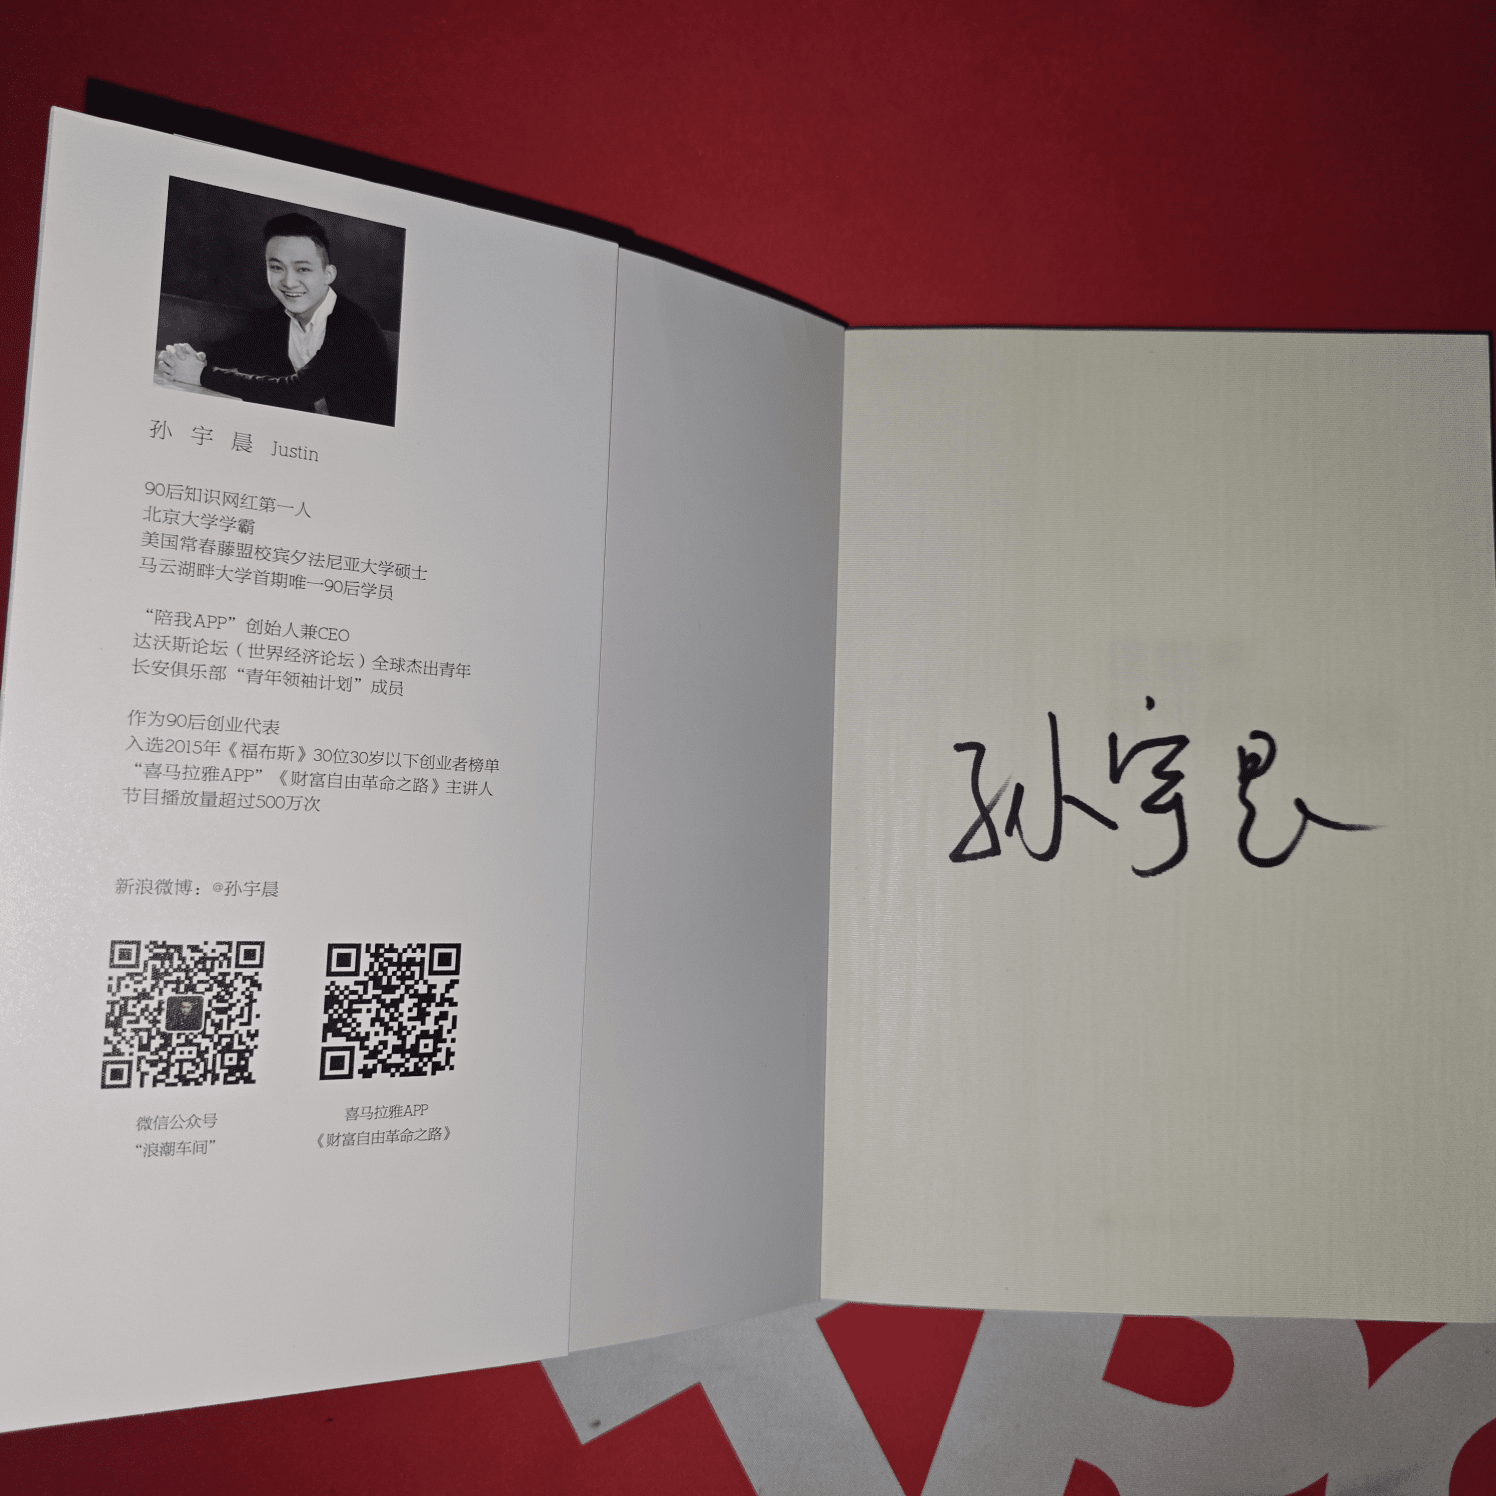 孙 宇 晨 Justin
90后知识网红第一人
北京大学学霸
美国常春藤盟校宾夕法尼亚大学硕士
马云湖畔大学首期唯一90后学员
“陪我APP”创始人兼CEO
达沃斯论坛（世界经济论坛）全球杰出青年
长安俱乐部“青年领袖计划”成员
作为90后创业代表
入选2015年《福布斯》30位30岁以下创业者榜单
“喜马拉雅APP”《财富自由革命之路》主讲人
节目播放量超过500万次
新浪微博：@孙宇晨
微信公众号
“浪潮车间”
喜马拉雅APP
《财富自由革命之路》
孙宇晨